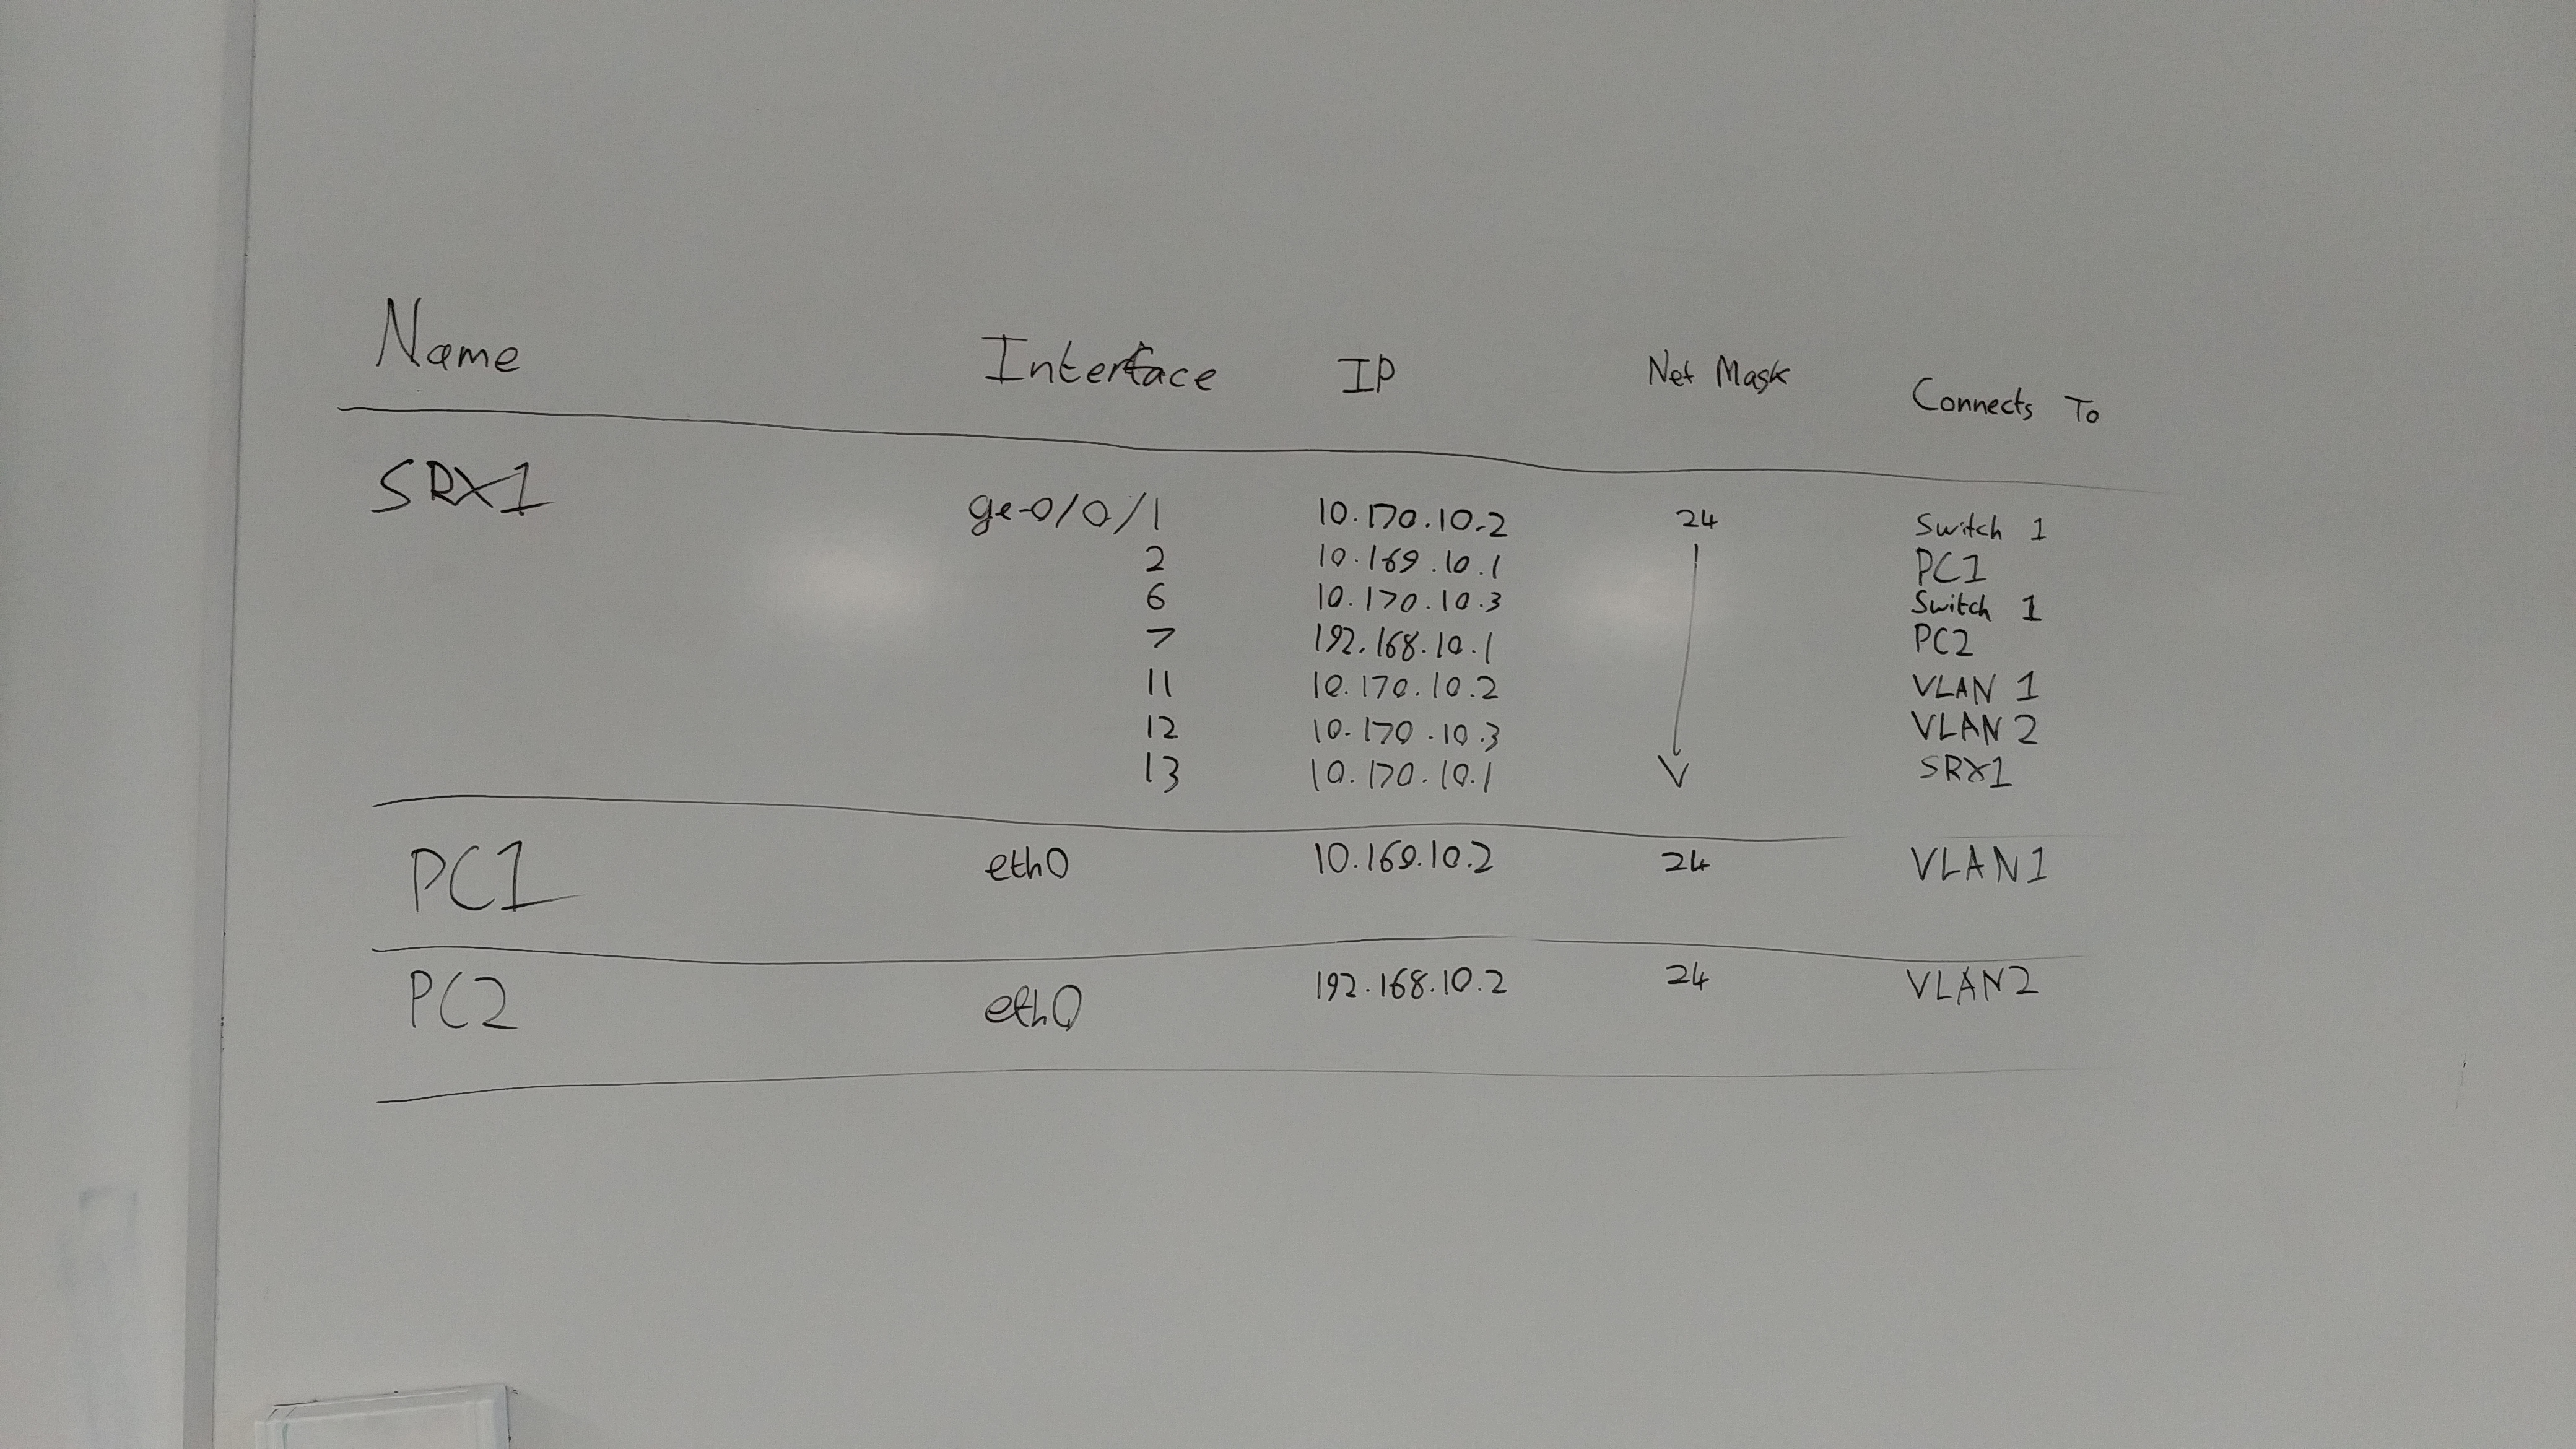 Name Interface IP Net Mask Connects To
SRX1 ge-0/0/1 10.170.10.2 24 Switch 1
2 10.169.10.1 PC1
6 10.170.10.3 Switch 1
7 192.168.10.1 PC2
11 10.170.10.2 VLAN 1
12 10.170.10.3 VLAN 2
13 10.170.10.1 SRX1
PC1 eth0 10.169.10.2 24 VLAN1
PC2 eth0 192.168.10.2 24 VLAN2